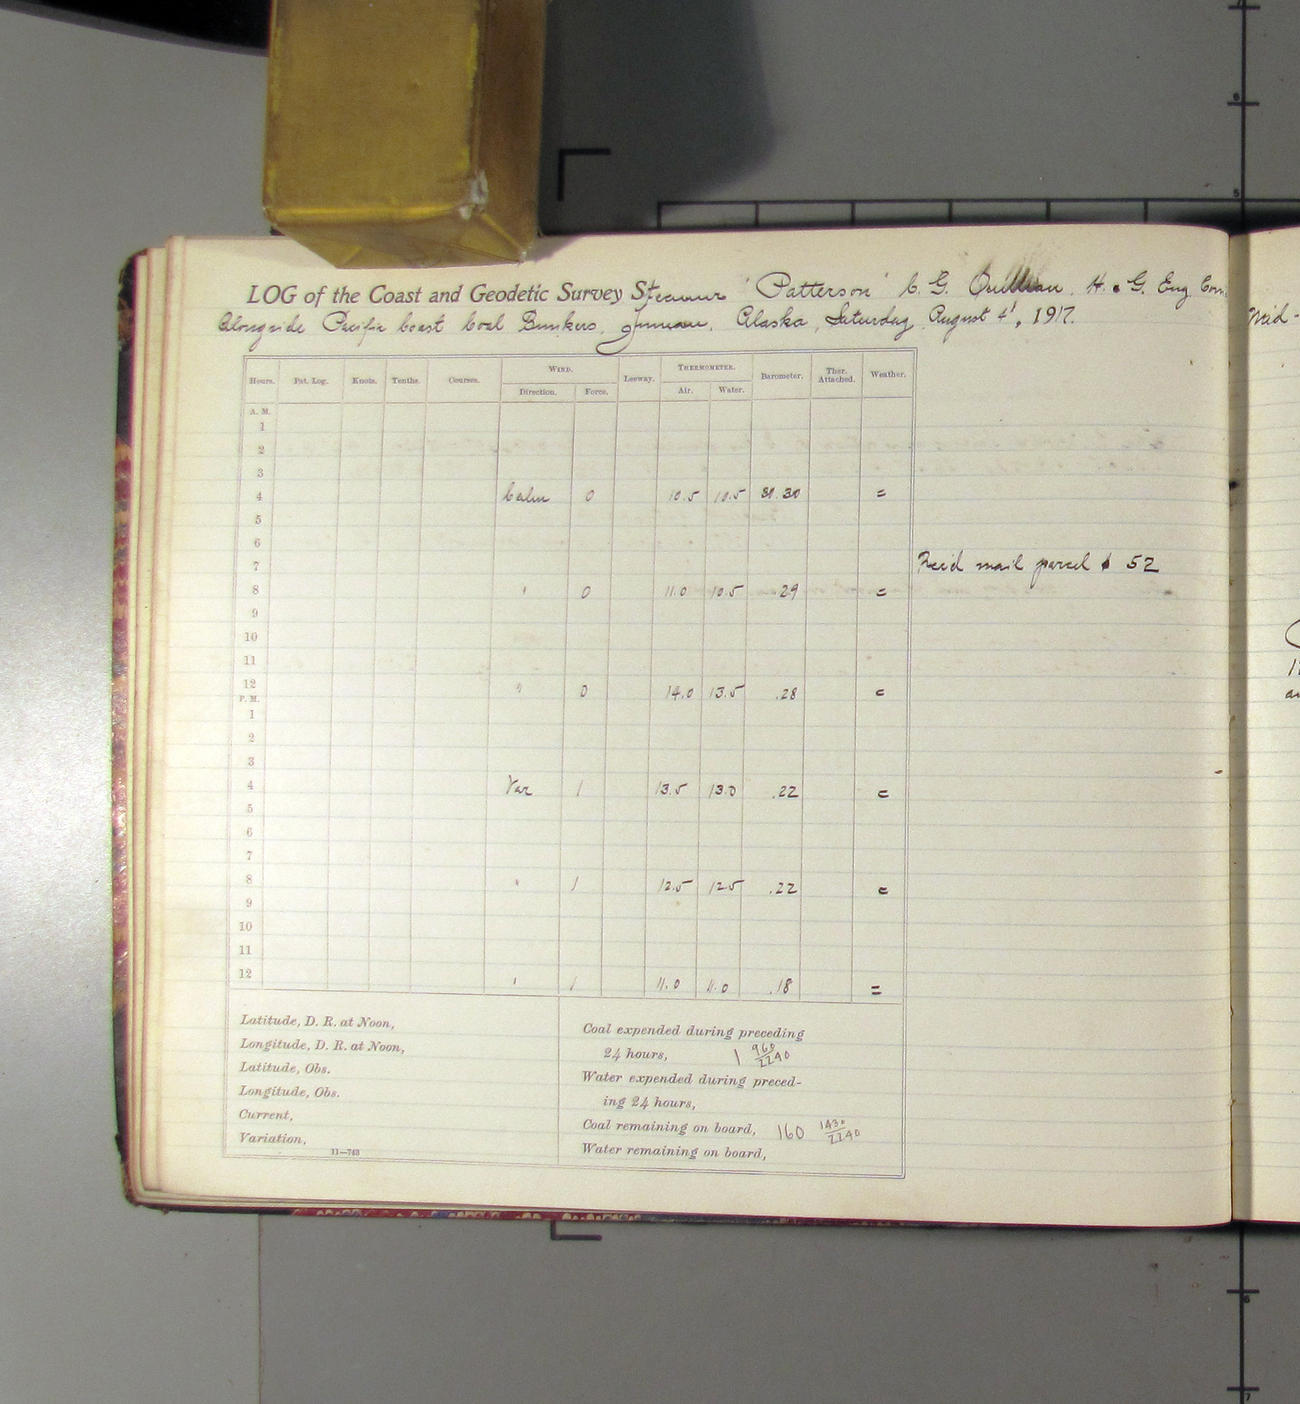 LOG of the Coast and Geodetic Survey Steamer "Patterson" C. G. Quillian, H. & G. Eng. Com
Alongside Pacific Coast Coal Bunkers, Juneau, Alaska, Saturday August 4', 1917.
Hours. Pat. Log. Knots. Tenths. Courses. WIND. Leeway. THERMOMETER. Barometer. Ther. Attached. Weather.
Direction. Force. Air. Water.
A. M.
1
2
3
4 Calm 0 10.5 10.5 30.30 =
5
6
7 Rec'd mail parcel $ 52
8 " 0 11.0 10.5 .29 =
9
10
11
12 " 0 14.0 13.5 .28 c
P. M.
1
2
3
4 Var 1 13.5 13.0 .22 c
5
6
7
8 " 1 12.5 12.5 .22 c
9
10
11
12 " 1 11.0 11.0 .18 =
Latitude, D. R. at Noon,
Longitude, D. R. at Noon,
Latitude, Obs.
Longitude, Obs.
Current,
Variation,
11—743
Coal expended during preceding
24 hours, 1 960/2240
Water expended during preced-
ing 24 hours,
Coal remaining on board, 160 1430/2240
Water remaining on board,
Mid-